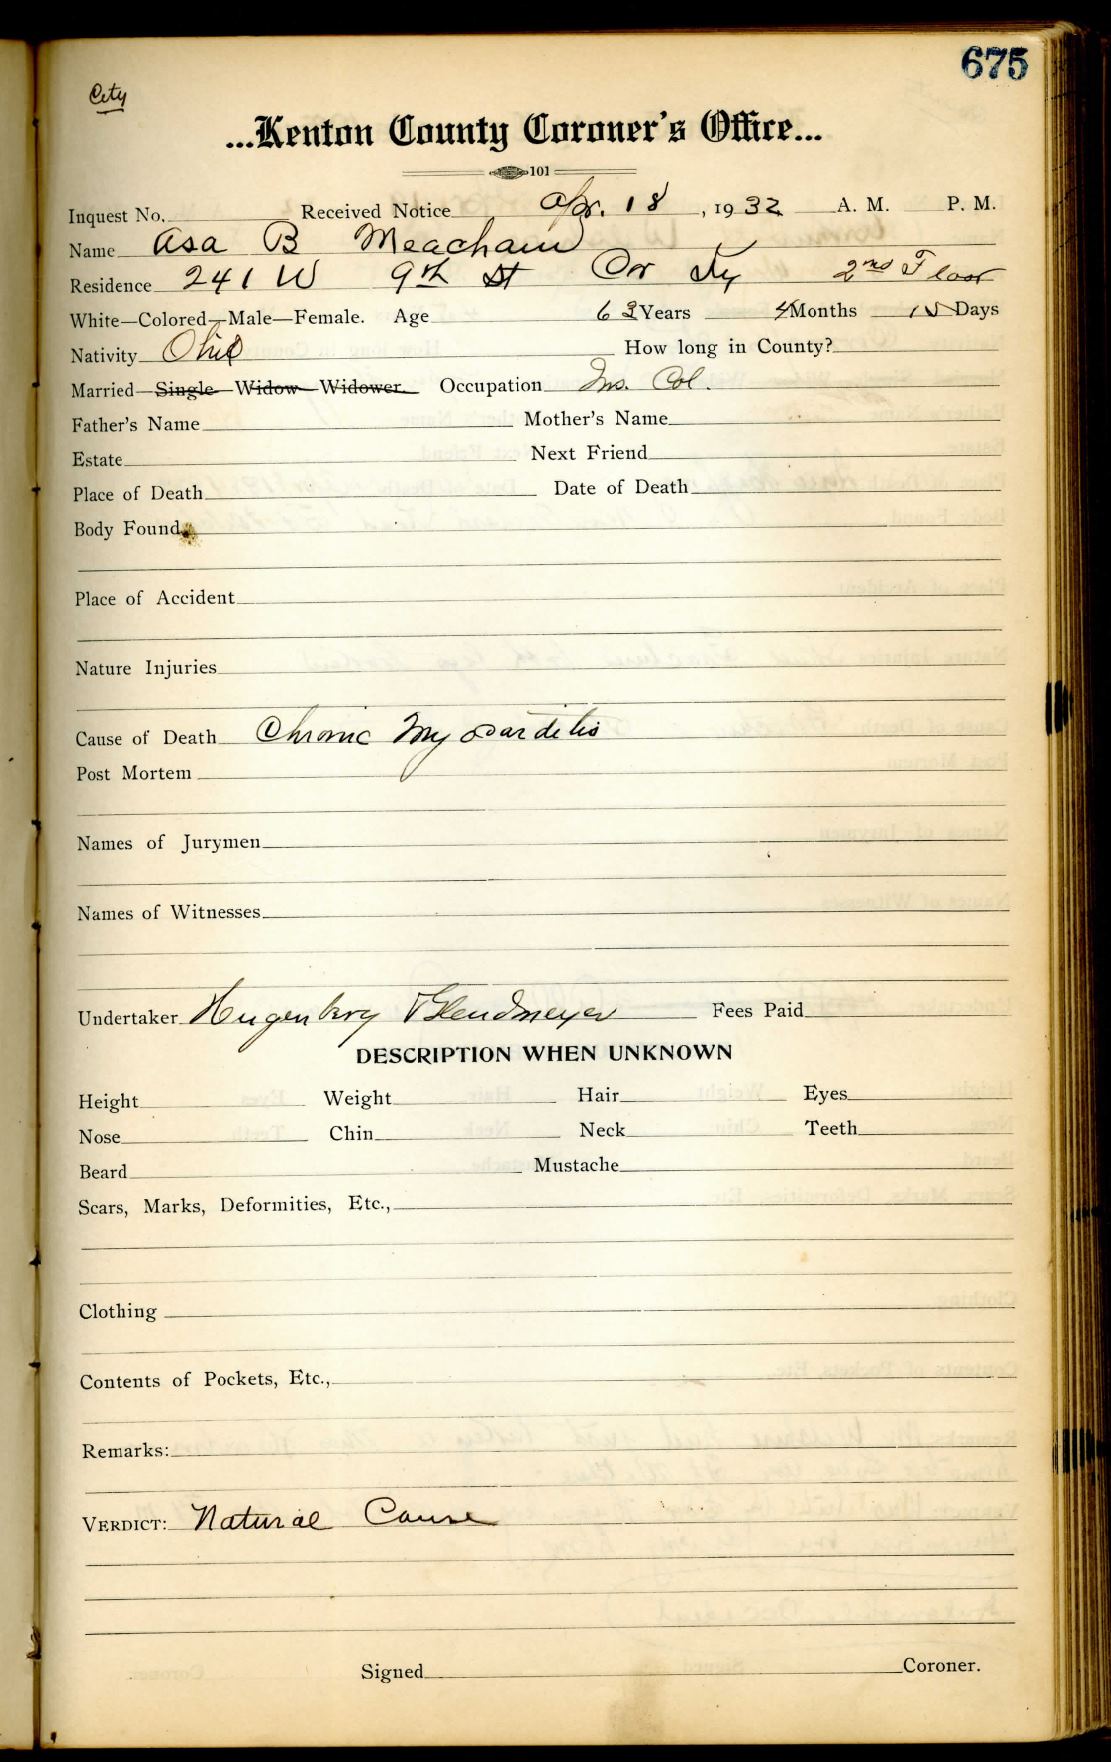 675
City
...Kenton County Coroner's Office...
101
Inquest No. Received Notice Apr. 18, 1932 A. M. P. M.
Name Asa B Meacham
Residence 241 W 9th St Cov Ky 2nd Floor
White—Colored—Male—Female. Age 63 Years 4 Months Days
Nativity Ohio How long in County?
Married—Single—Widow—Widower. Occupation Ins. Col.
Father's Name Mother's Name
Estate Next Friend
Place of Death Date of Death
Body Found
Place of Accident
Nature Injuries
Cause of Death Chronic Myocarditis
Post Mortem
Names of Jurymen
Names of Witnesses
Undertaker Fees Paid
DESCRIPTION WHEN UNKNOWN
Height Weight Hair Eyes
Nose Chin Neck Teeth
Beard Mustache
Scars, Marks, Deformities, Etc.,
Clothing
Contents of Pockets, Etc.,
Remarks:
VERDICT: Natural Cause
Signed Coroner.